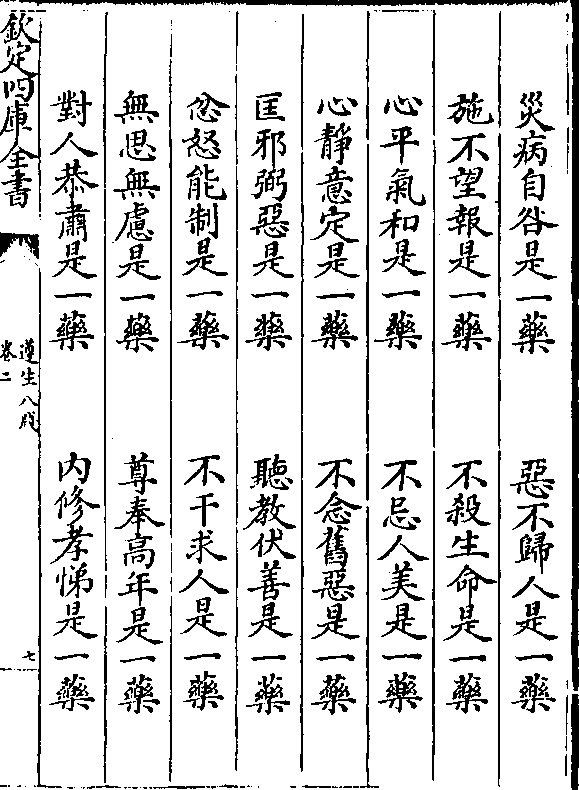 災病自咎是一藥　惡不歸人是一藥
施不望報是一藥　不殺生命是一藥
心平氣和是一藥　不忌人美是一藥
心靜意定是一藥　不念舊惡是一藥
匡邪弼惡是一藥　聽教伏善是一藥
忿怒能制是一藥　不干求人是一藥
無思無慮是一藥　尊奉高年是一藥
對人恭肅是一藥　内修孝悌是一藥
欽定四庫全書
遵生八牋
卷二
七